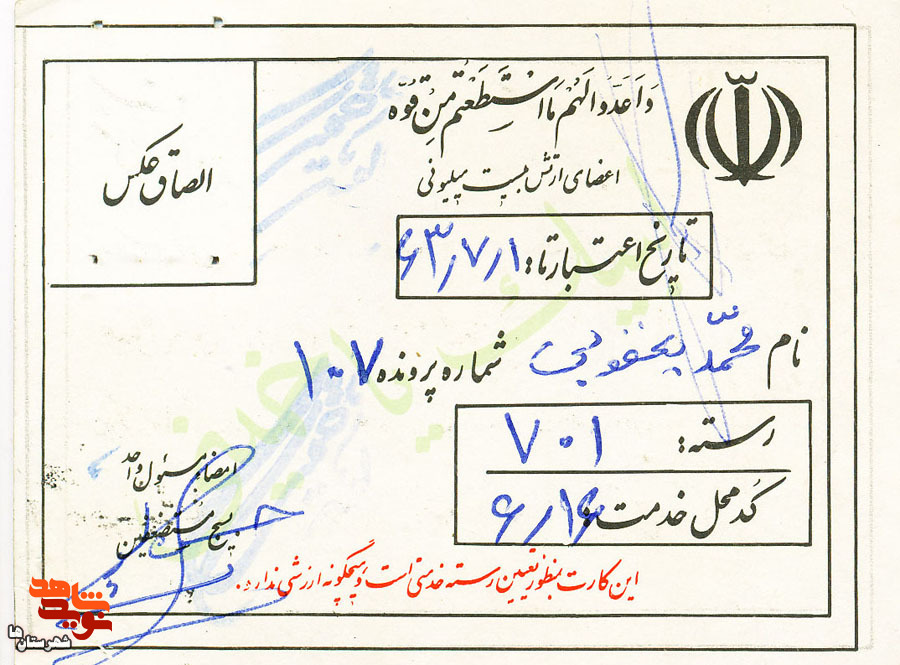 وَاَعَدَّوالَهُم مَااستَطَعتُم مِن قُوَّه
اعضای ارتش بیست میلیونی
الصاق عکس
تاریخ اعتبار تا: ۶۳/۷/۱
نام محمّد یعقوبی شماره پرونده ۱۰۷
رسته: ۷۰۱
کُد محل خدمت ۶/۱۶
امضاء مسئول واحد
بسیج مستضعفین
این کارت بمنظور تعیین رسته خدمتی است و هیچگونه ارزشی ندارد.
لبیک یا خمینی
نوید شاهد
شهرستان ها